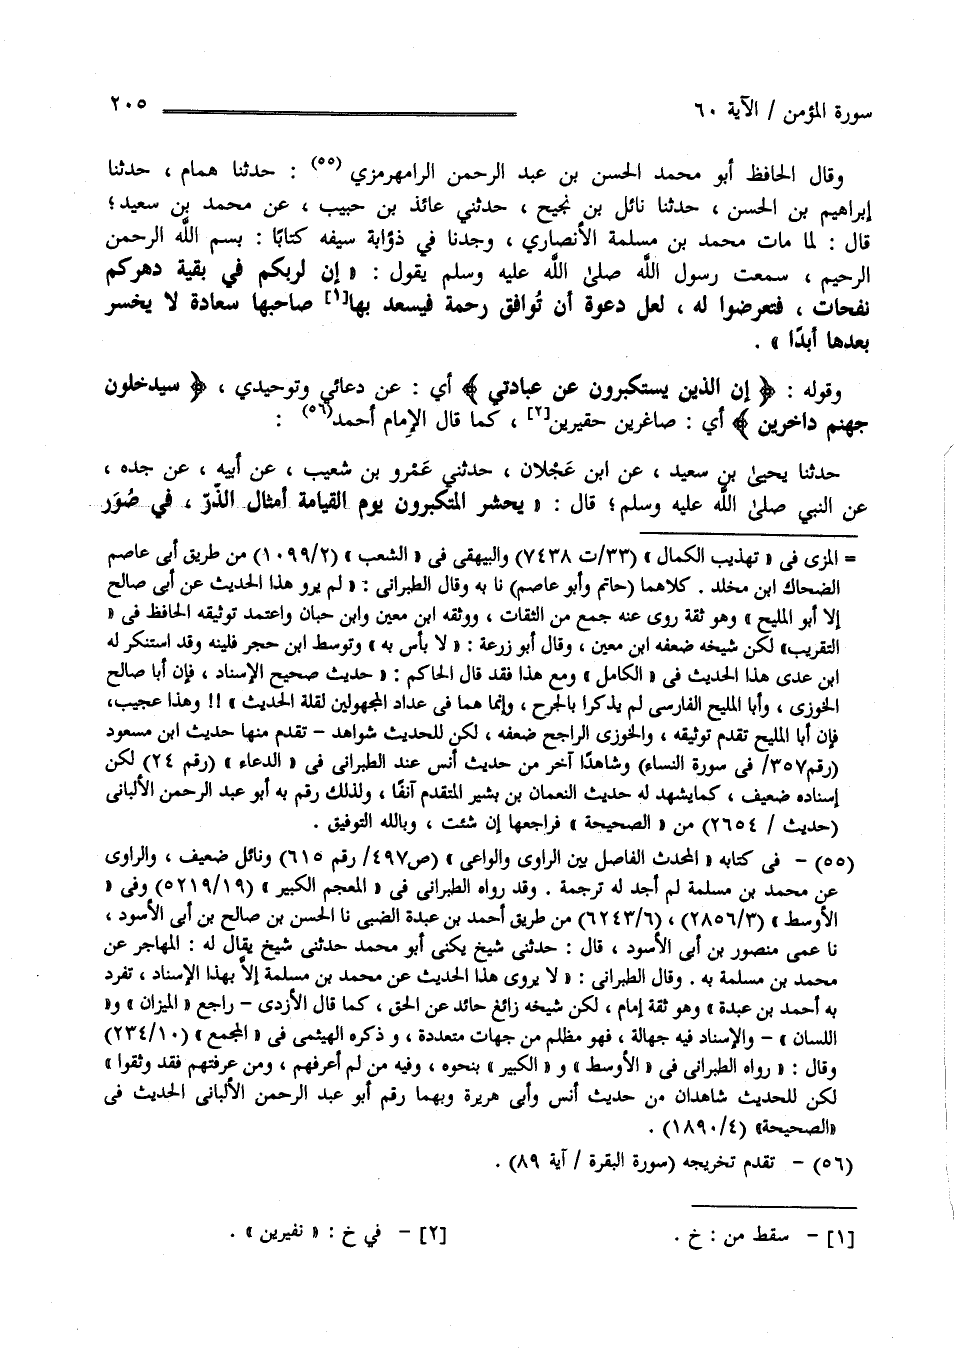 سورة المؤمن / الآية ٦٠
٢٠٥
وقال الحافظ أبو محمد الحسن بن عبد الرحمن الرامهرمزي (٥٥) : حدثنا همام ، حدثنا
إبراهيم بن الحسن ، حدثنا نائل بن نجيح ، حدثني عائذ بن حبيب ، عن محمد بن سعيد؛
قال : لما مات محمد بن مسلمة الأنصاري ، وجدنا في ذؤابة سيفه كتابًا : بسم اللَّه الرحمن
الرحيم ، سمعت رسول اللَّه صلىٰ اللَّه عليه وسلم يقول : « إن لربكم في بقية دهركم
نفحات ، فتعرضوا له ، لعل دعوة أن تُوافق رحمة فيسعد بها[١] صاحبها سعادة لا يخسر
بعدها أبدًا » .
وقوله : ﴿ إن الذين يستكبرون عن عبادتي ﴾ أي : عن دعائي وتوحيدي ، ﴿ سيدخلون
جهنم داخرين ﴾ أي : صاغرين حقيرين[٢] ، كما قال الإمام أحمد(٥٦) :
حدثنا يحيىٰ بن سعيد ، عن ابن عَجْلان ، حدثني عَمْرو بن شعيب ، عن أبيه ، عن جده ،
عن النبي صلىٰ اللَّه عليه وسلم؛ قال : « يحشر المتكبرون يوم القيامة أمثال الذّرّ ، في صُوَر
= المزى فى « تهذيب الكمال » (٣٣/ت ٧٤٣٨) والبيهقى فى « الشعب » (١٠٩٩/٢) من طريق أبى عاصم
الضحاك ابن مخلد . كلاهما (حاتم وأبو عاصم) نا به وقال الطبرانى : « لم يرو هذا الحديث عن أبى صالح
إلا أبو المليح » وهو ثقة روى عنه جمع من الثقات ، ووثقه ابن معين وابن حبان واعتمد توثيقه الحافظ فى «
التقريب» لكن شيخه ضعفه ابن معين ، وقال أبو زرعة : « لا بأس به » وتوسط ابن حجر فلينه وقد استنكر له
ابن عدى هذا الحديث فى « الكامل » ومع هذا فقد قال الحاكم : « حديث صحيح الإسناد ، فإن أبا صالح
الخوزى ، وأبا المليح الفارسى لم يذكرا بالجرح ، وإنما هما فى عداد المجهولين لقلة الحديث » !! وهذا عجيب،
فإن أبا المليح تقدم توثيقه ، والخوزى الراجح ضعفه ، لكن للحديث شواهد – تقدم منها حديث ابن مسعود
(رقم٣٥٧/ فى سورة النساء) وشاهدًا آخر من حديث أنس عند الطبرانى فى « الدعاء » (رقم ٢٤) لكن
إسناده ضعيف ، كمايشهد له حديث النعمان بن بشير المتقدم آنفًا ، ولذلك رقم به أبو عبد الرحمن الألبانى
(حديث / ٢٦٥٤) من « الصحيحة » فراجعها إن شئت ، وبالله التوفيق .
(٥٥) – فى كتابه « المحدث الفاصل بين الراوى والواعى » (ص٤٩٧/ رقم ٦١٥) ونائل ضعيف ، والراوى
عن محمد بن مسلمة لم أجد له ترجمة . وقد رواه الطبرانى فى « المعجم الكبير » (٥٢١٩/١٩) وفى «
الأوسط » (٢٨٥٦/٣) ، (٦٢٤٣/٦) من طريق أحمد بن عبدة الضبى نا الحسن بن صالح بن أبى الأسود ،
نا عمى منصور بن أبى الأسود ، قال : حدثنى شيخ يكنى أبو محمد حدثنى شيخ يقال له : المهاجر عن
محمد بن مسلمة به . وقال الطبرانى : « لا يروى هذا الحديث عن محمد بن مسلمة إلاَّ بهذا الإسناد ، تفرد
به أحمد بن عبدة » وهو ثقة إمام ، لكن شيخه زائغ حائد عن الحق ، كما قال الأزدى – راجع « الميزان » و«
اللسان » – والإسناد فيه جهالة ، فهو مظلم من جهات متعددة ، و ذكره الهيثمى فى « المجمع » (٢٣٤/١٠)
وقال : « رواه الطبرانى فى « الأوسط » و « الكبير » بنحوه ، وفيه من لم أعرفهم ، ومن عرفتهم فقد وثقوا »
لكن للحديث شاهدان من حديث أنس وأبى هريرة وبهما رقم أبو عبد الرحمن الألبانى الحديث فى
«الصحيحة» (١٨٩٠/٤) .
(٥٦) – تقدم تخريجه (سورة البقرة / آية ٨٩) .
[١] – سقط من : خ .
[٢] – في خ : « نفيرين » .